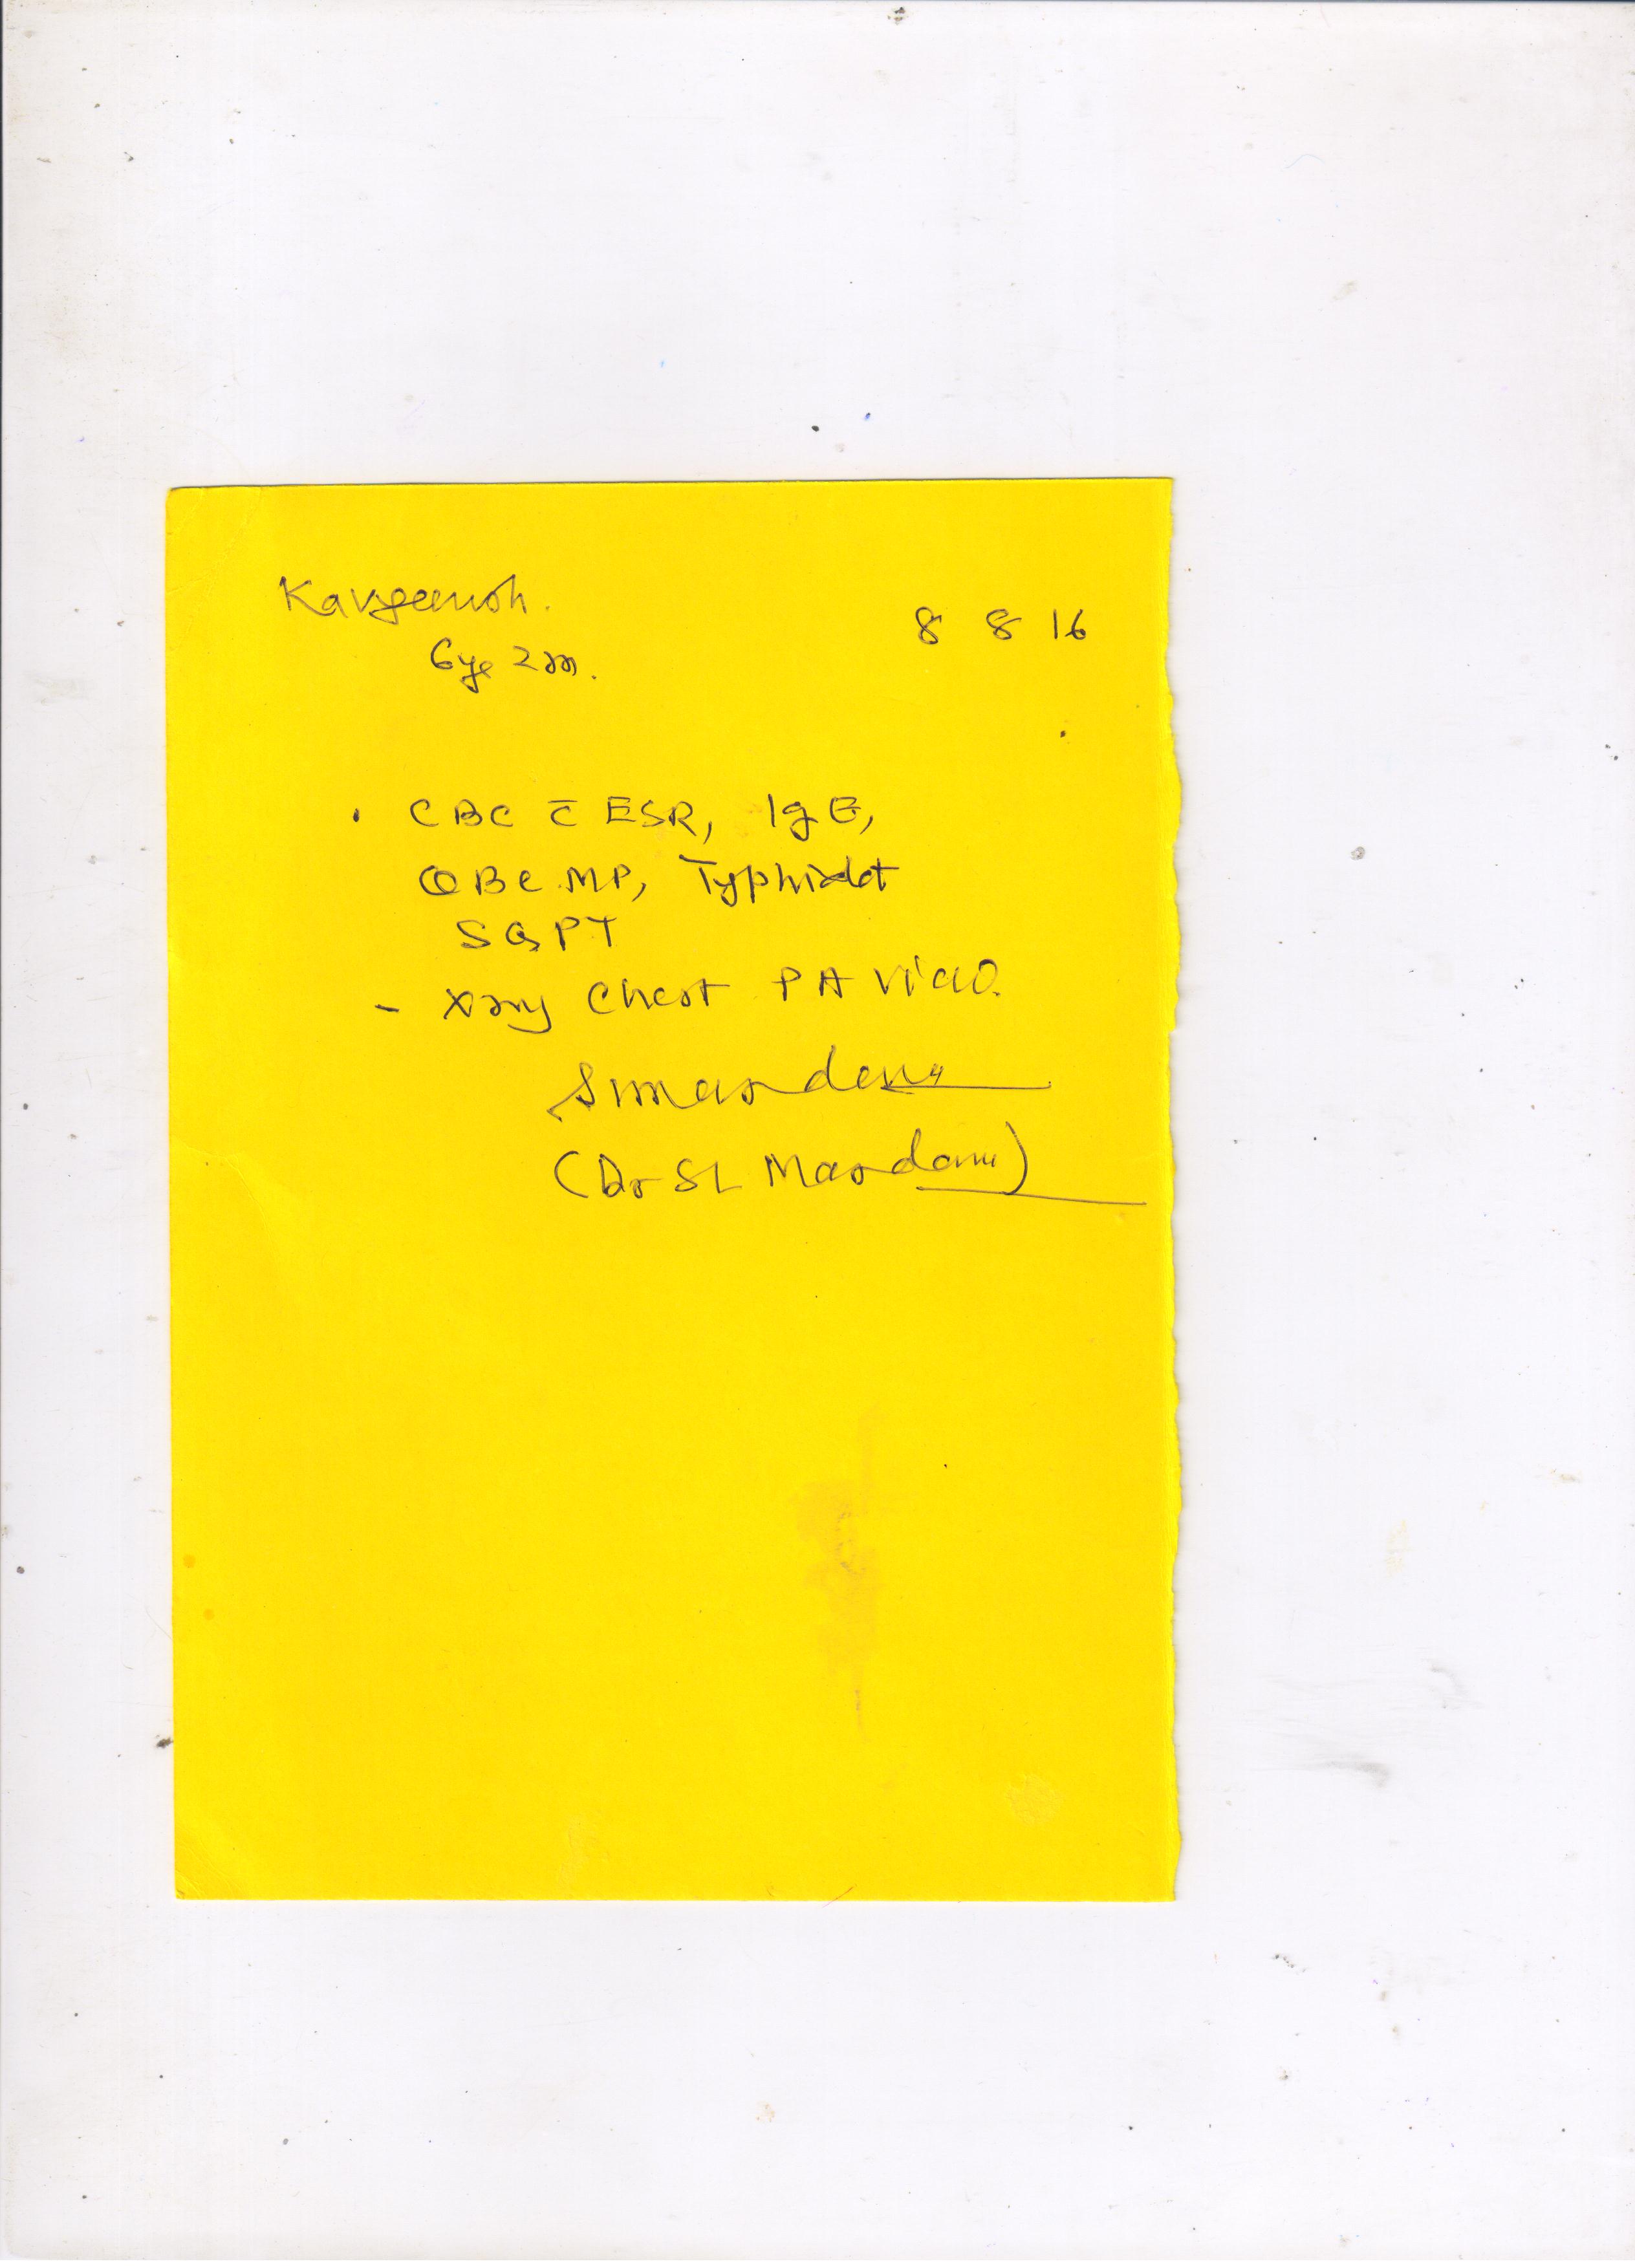 8 8 16
6ye 2m.
. CBC c̄ ESR, IgE,
QBC MP, Typhidot
SGPT
- Xray Chest PA View.
(Dr SL Mandani)